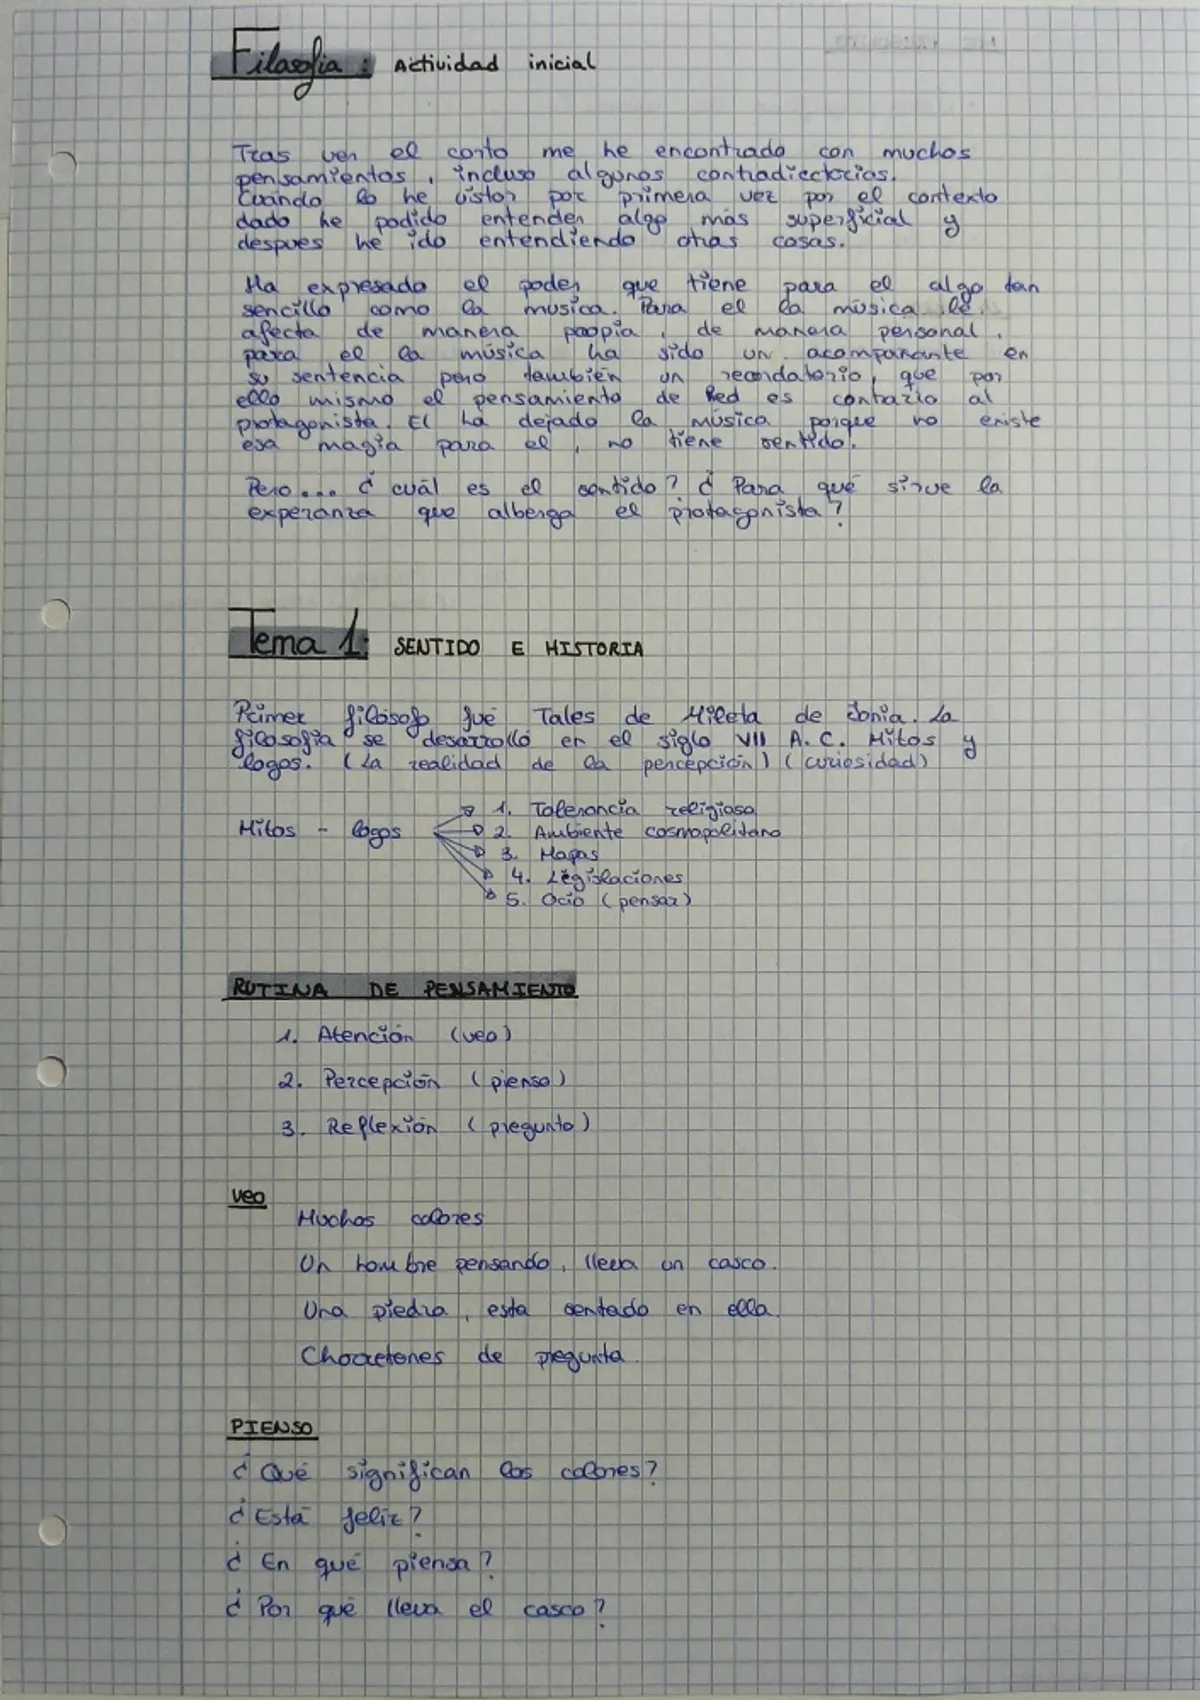 Filosofia : Actividad inicial
Tras ver el corto me he encontrado con muchos
pensamientos, incluso algunos contradiectorias.
Cuando lo he vistor por primera vez por el contexto
dado he podido entender algo más superficial y
despues he ido entendiendo otras cosas.
Ha expresado el poder que tiene para el algo tan
sencillo como la musica. Para el la música le
afecta de manera propia, de manera personal,
para el la música ha sido un acompañante en
su sentencia pero también un recordatorio, que por
ello mismo el pensamiento de Red es contrario al
protagonista. El ha dejado la música porque no existe
esa magia para el, no tiene sentido.
Pero... ¿cuál es el sentido? ¿Para qué sirve la
experanza que alberga el protagonista?
Tema 1: SENTIDO E HISTORIA
Primer filósofo fué Tales de Mileto de Jonia. La
filosofía se desarrolló en el siglo VII A.C. Mitos y
logos. (La realidad de la percepción) (curiosidad)
Mitos - logos
1. Tolerancia religiosa
2. Ambiente cosmopolitano
3. Mapas
4. Legislaciones
5. Ocio (pensar)
RUTINA DE PENSAMIENTO
1. Atención (veo)
2. Percepción (pienso)
3. Reflexión (pregunto)
veo
Muchos colores
Un hombre pensando, lleva un casco.
Una piedra, esta sentado en ella.
Chorretones de pregunta.
PIENSO
¿Qué significan los colores?
¿Está feliz?
¿En qué piensa?
¿Por qué lleva el casco?